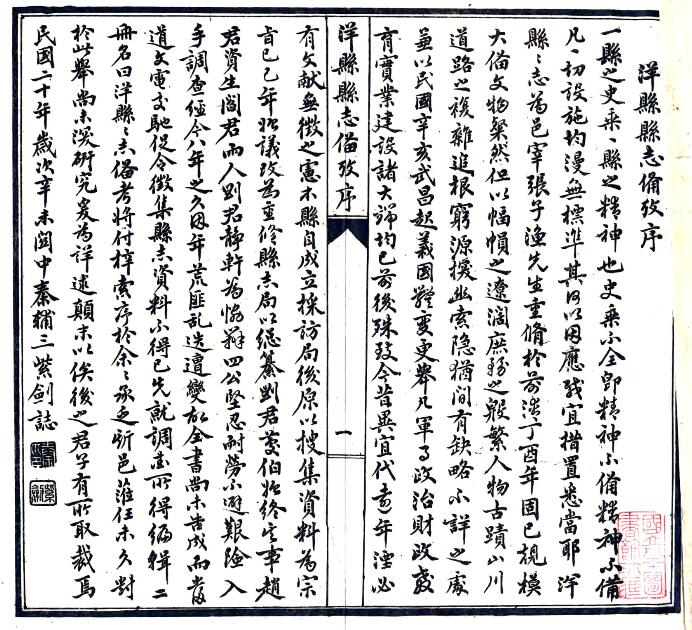 洋縣縣志備攷序
一縣之史乘一縣之精神也史乘不全即精神不備精神不備
凡一切設施均漫無標準其何以因應咸宜措置悉當耶洋
縣縣志為邑宰張子漁先生重脩於前清丁酉年固已規模
大備文物粲然但以幅幀之遼濶庶務之殷繁人物古蹟山川
道路之複雜追根窮源援幽索隱猶間有缺略不詳之處
兼以民國辛亥武昌起義國體變更舉凡軍事政治財政教
育實業建設諸大端均已前後殊致今昔異宜代遠年湮必
洋縣縣志備攷序
一
有文獻無徵之憲本縣自成立採訪局後原以搜集資料為宗
旨己巳年始議改為重修縣志局以總纂劉君蔓伯始終其事趙
君資生閻君雨人劉君靜軒為協辦四公堅忍耐勞不避艱險入
手調查經今八年之久因年荒匪亂迭遭變故全書尚未告成而
道文電交馳促令徵集縣志資料不得已先就調查所得編輯二
冊名曰洋縣縣志備考將付梓索序於余余承乏斯邑蒞任未久對
於此舉尚未深研究爰為詳述顛末以俟後之君子有所取裁焉
民國二十年歲次辛未閏中秦輔三紫劍誌